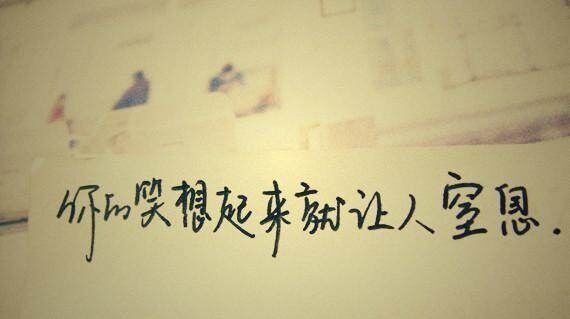 你的笑想起来就让人窒息.